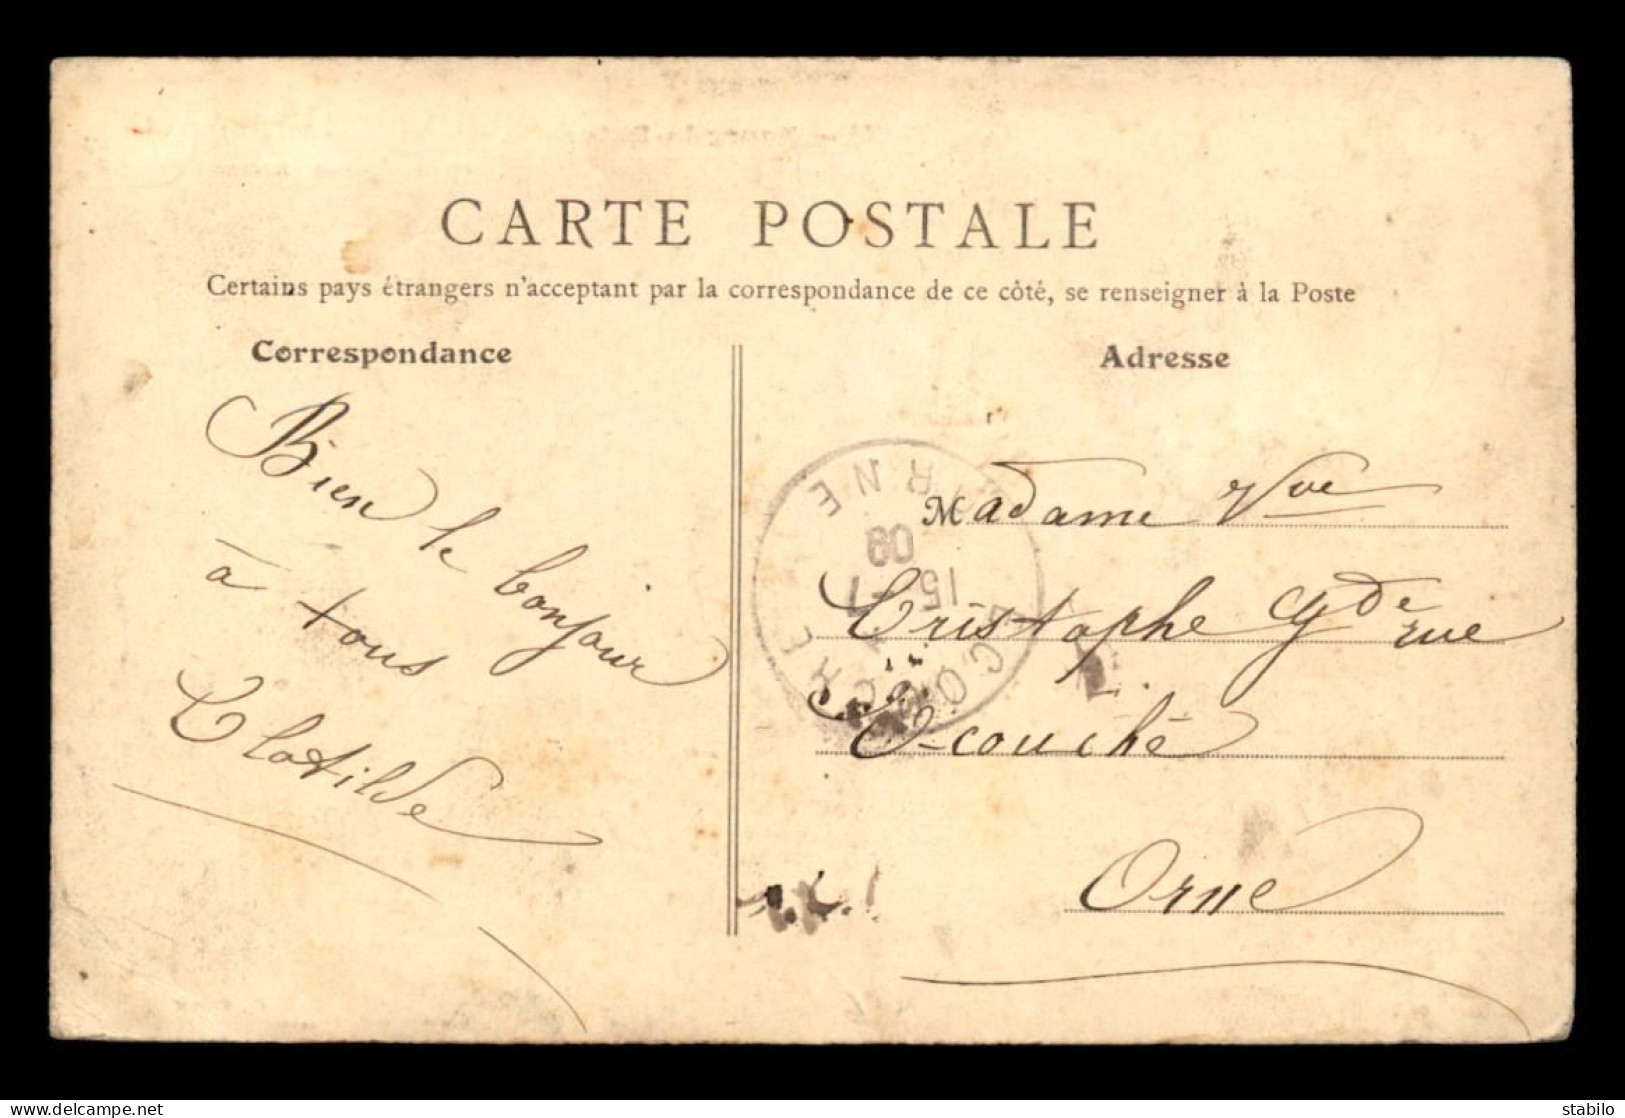 CARTE POSTALE
Certains pays étrangers n'acceptant par la correspondance de ce côté, se renseigner à la Poste
Correspondance
Bien le bonjour
à tous
Clotilde
Adresse
Madame Vve
Cristophe Gde rue
Ecouché
Orne
ECOUCHE
15-1
09
ORNE
delcampe.net
stabilo